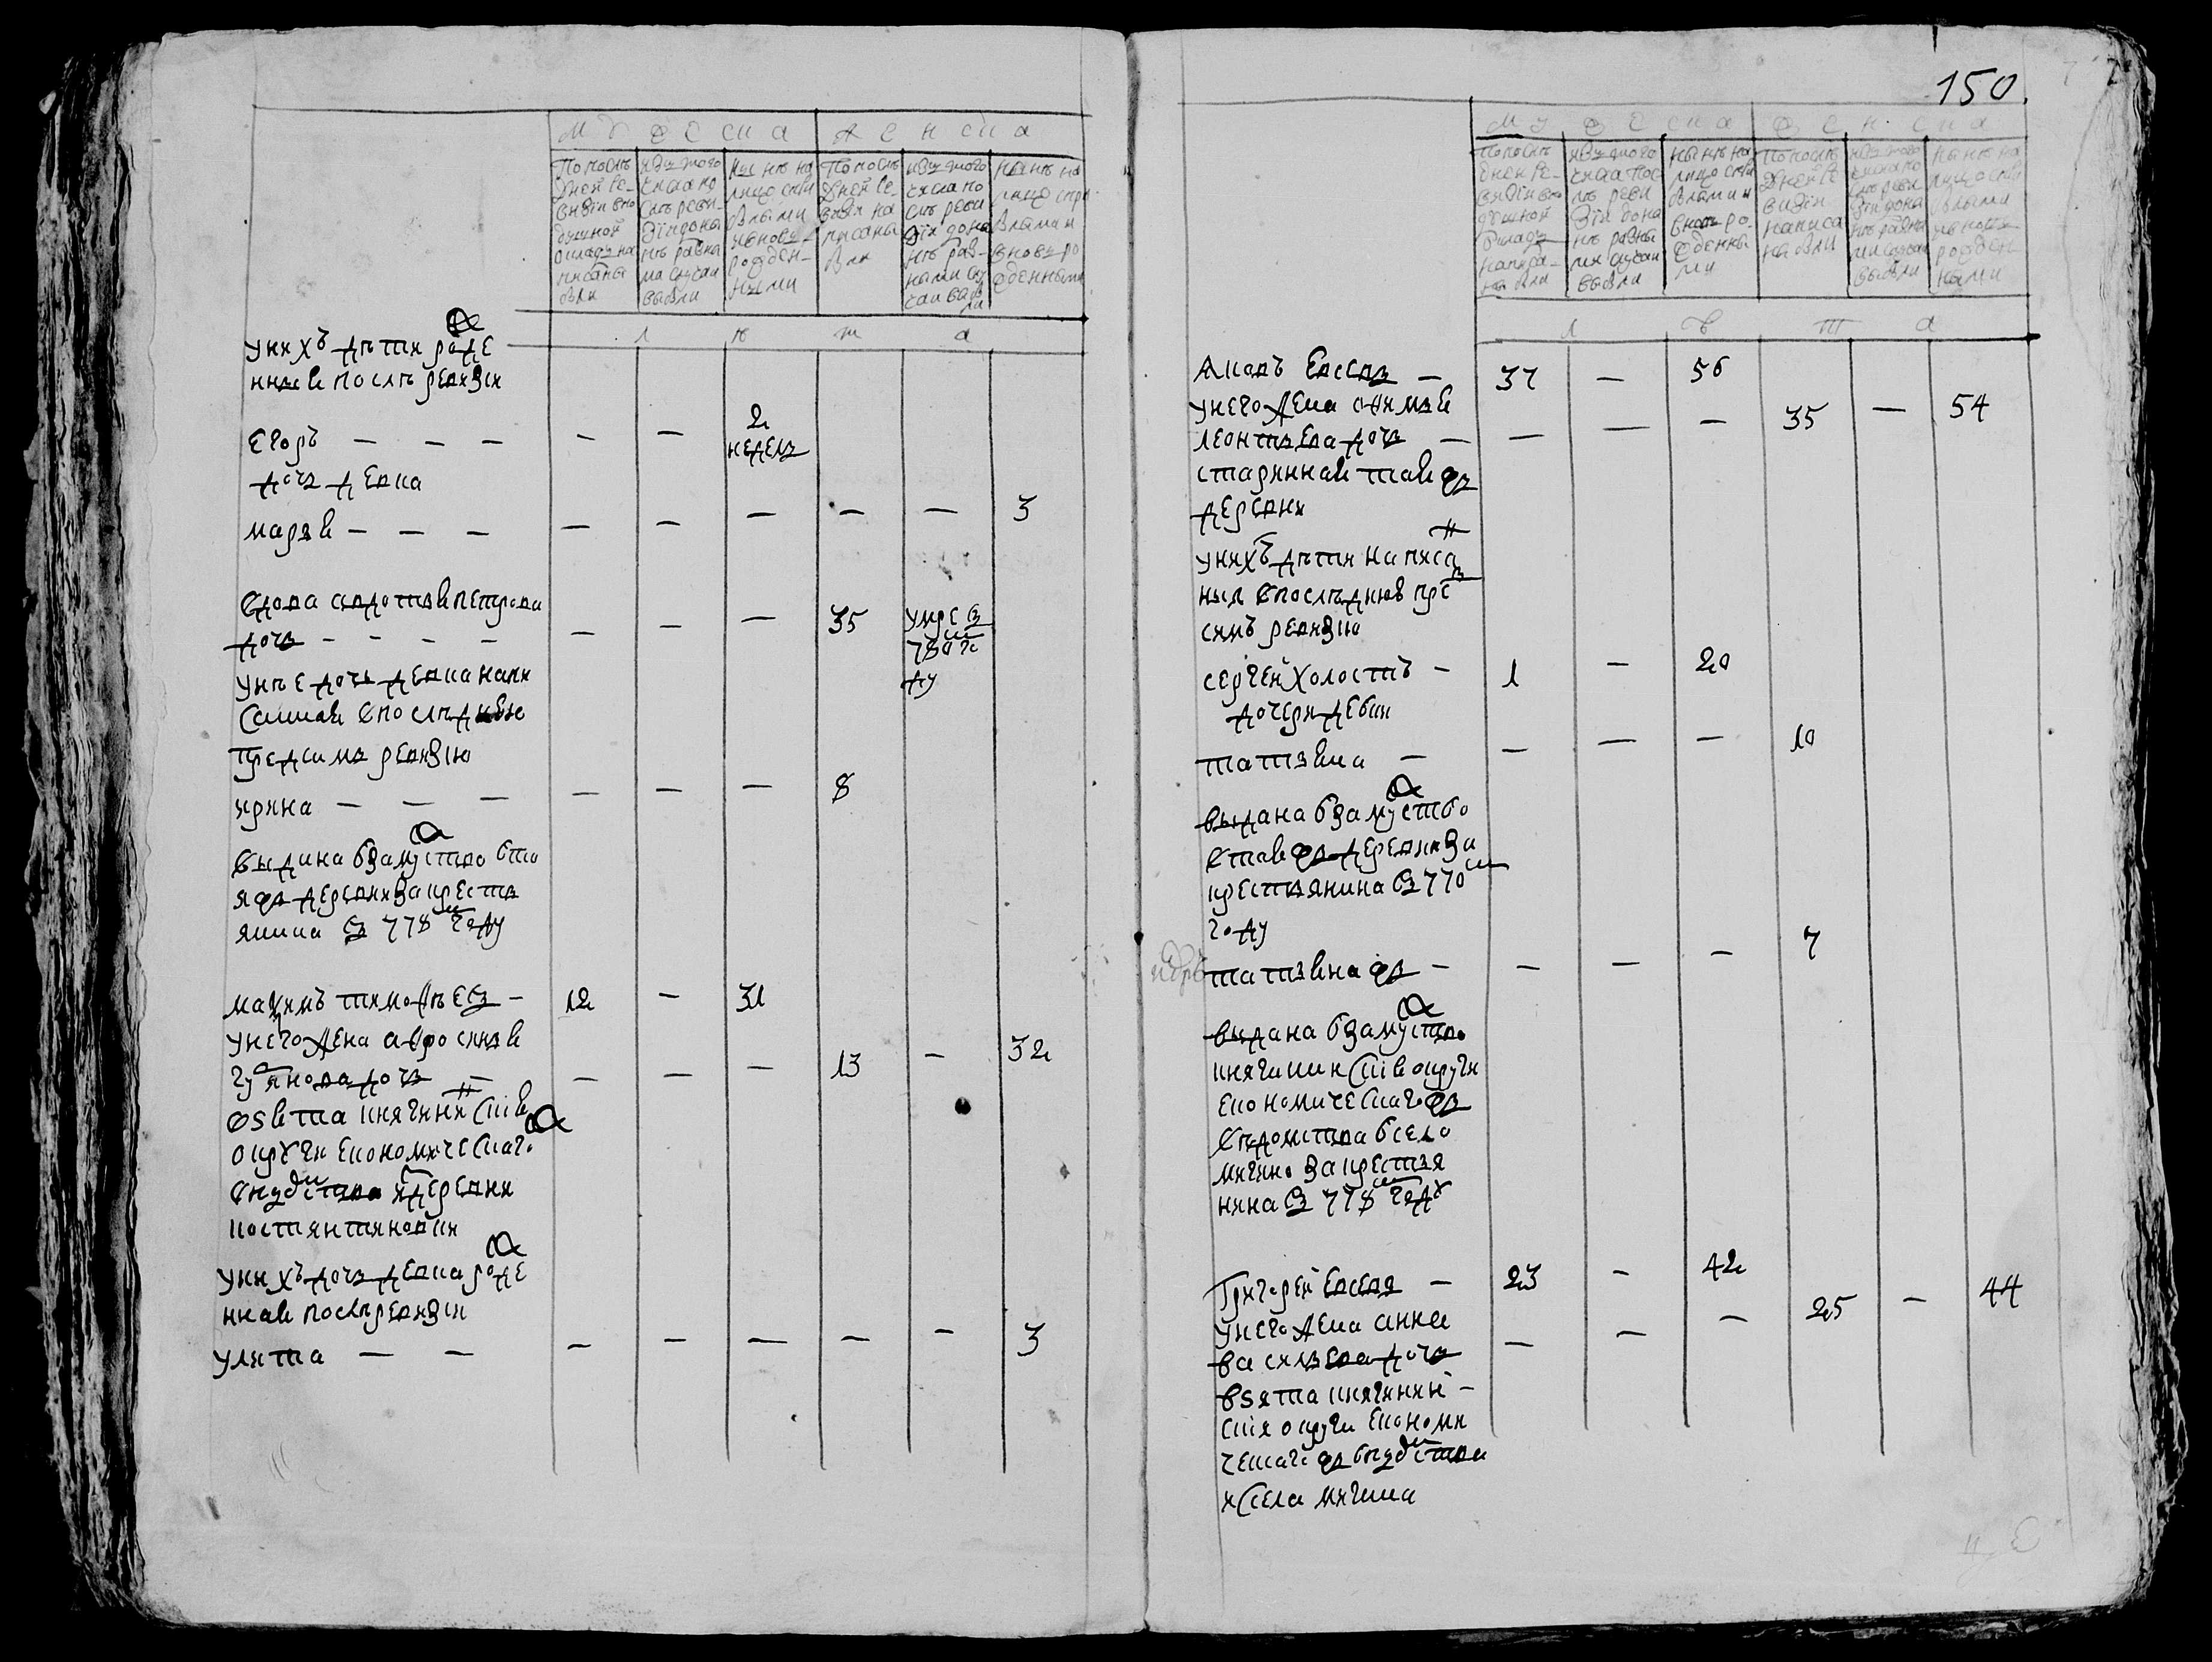 мужеска женска
Попослѣ
дней ре-
визіи впо
душной
окладу на
писаны
были
изъ того
числа по
слѣ реви-
зіи до ны
нѣ разны
ми случаи
выбыли
Нынѣ на
лицо съпри
былыми
ивновь
рожден-
ными
Попослѣ
дней ре-
визіи на
писаны
были
изъ того
числа по
слѣ реви
зіи до ны
нѣ раз-
ными слу
чаи выбы
ли
Нынѣ на
лицо спри
былыми и
вновь ро
жденными
лѣта
унихъ дѣти рожде
нныя послѣ ревизіи
егоръ — — — — — 2 неделъ
дочь девка
маря — — — — — — — — 3
вдова авдотья петрова
дочь — — — — — — — 35 умре въ 780м го ду
унѣе дочь девка напи
санная впослѣднюю
предсимъ ревизію
ирина — — — — — — 8
выдана взамужство вто
яжъ деревни закрестья
янина въ 778м году
маѯимъ тимофѣевъ — 12 — 31
унего жена афросинья
гурянова дочь — — — — 13 — 32
взята княгининскія
округи економическаго
ведомства издеревни
костянтиновки
унихъ дочь девка рожде
нная послѣ ревизіи
улита — — — — — — — 3
150.
мужеска женска
Попослѣ
дней ре-
визіи впо
душной
окладъ
написа-
ны были
изъ того
числа пос
лѣ реви
зіи дона
нѣ разны
ми случаи
выбыли
нынѣ на
лицо спри
былыми и
вновь ро-
жденны
ми
Попослѣ
дней ре
визіи
написа
ны были
изъ того
числа по
слѣ реви
зіи дона
нѣ разны
ми случаи
выбыли
нынѣ на
лицо спри
былыми
ивновь
рожден
ными
лѣта
Яковъ Евсевъ — 37 — 56
унего жена офимья
леонтьева дочь — — — — 35 — 54
старинная тояжъ
деревни
унихъ дѣти написан
ныя впослѣднюю пред
симъ ревизію
сергей холостъ — 1 — 20
дочери девки
татьяна — — — — 10
выдана взамужство
втояжъ деревни за
крестьянина въ 770м
году
татьянажъ — — — — 7
выдана взамужство
княгининскія округи
економическагожъ
ведомства всело
мигино закрестья
нина въ 778м году
Григорей Евсевъ — 23 — 42
унего жена анна
васильева дочь — — — 25 — 44
взята княгинин-
скія округи економи
ческагожъ ведомства
изсела мигина